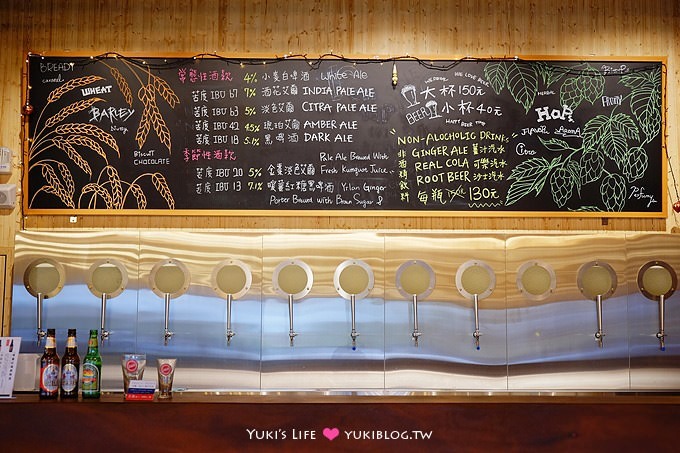 BREADY
caramel
WHEAT
BARLEY
Nutty
BISCUIT
CHOCOLATE
常態性酒款 4% 小麥白啤酒 WHITE ALE
苦度 IBU 67 7% 酒花艾爾 INDIA PALE ALE
苦度 IBU 63 5% 淡色艾爾 CITRA PALE ALE
苦度 IBU 42 4.5% 琥珀艾爾 AMBER ALE
苦度 IBU 18 5.1% 黑啤酒 DARK ALE
季節性酒款 Pale Ale Brewed With
苦度 IBU 20 5% 金棗淡色艾爾 Fresh Kumquat Juice
苦度 IBU 13 7.1% 噶瑪蘭紅糖黑啤酒 Yilan Ginger
Porter Brewed with Brown Sugar &
WE LOVE BEER
BEER
大杯150元
小杯40元
HAPPY BEER TIME
"NON-ALOCHOLIC DRINK"
非酒精飲料
GINGER ALE 薑汁汽水
REAL COLA 可樂汽水
ROOT BEER 沙士汽水
每瓶 130元
HERBAL
FRUITY
HOP
Flavor
AROMA
Citra
Perfumy
YUKI'S LIFE YUKIBLOG.TW